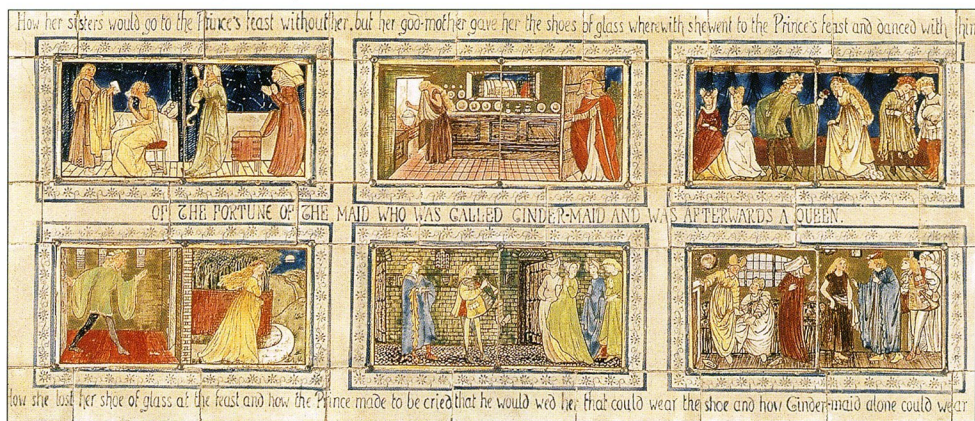 How her sisters would go to the Prince's feast without her, but her god-mother gave her the shoes of glass wherewith she went to the Prince's feast and danced with him
OF THE FORTUNE OF THE MAID WHO WAS CALLED CINDER-MAID AND WAS AFTERWARDS A QUEEN.
How she lost her shoe of glass at the feast and how the Prince made to be cried that he would wed her that could wear the shoe and how Cinder-maid alone could wear